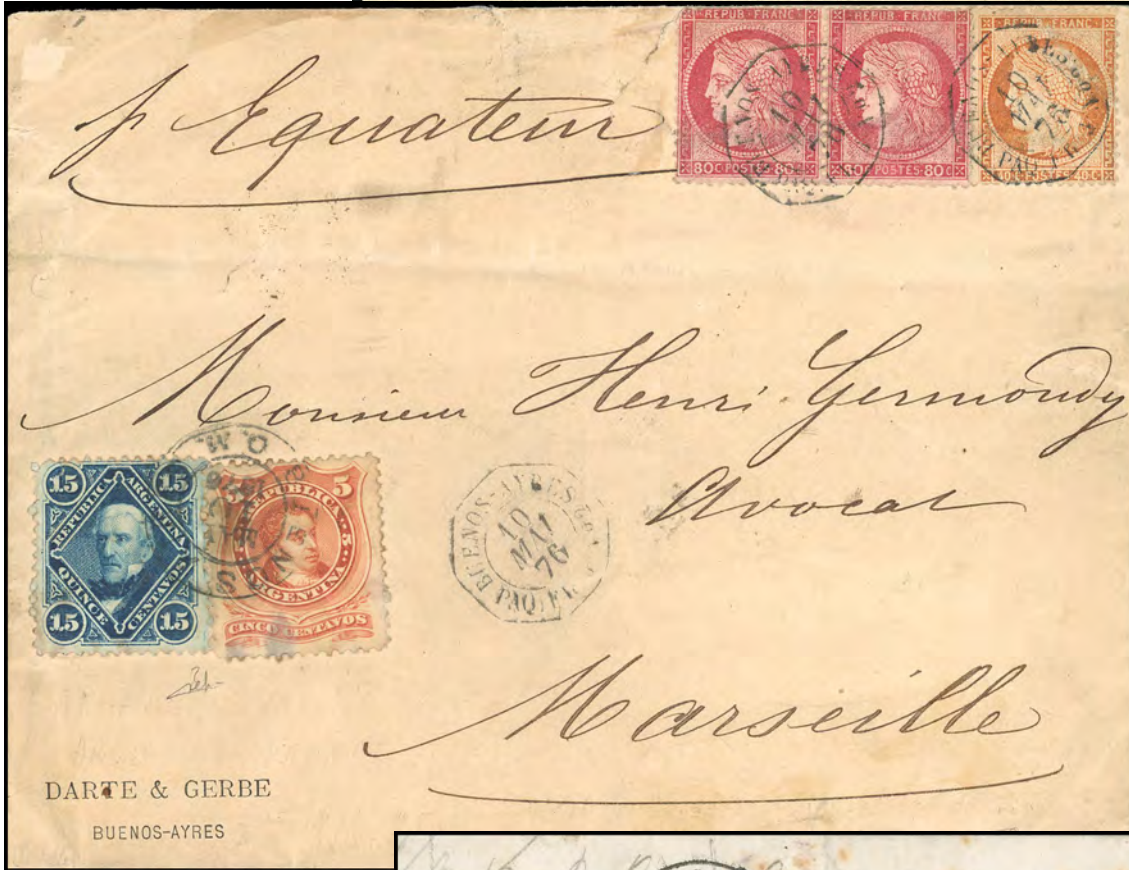 REPUB·FRANC REPUB·FRANC REPUB·FRANC
80C·POSTES·80C 80C·POSTES·80C 40C·POSTES·40C
10
MAI
76
PAQ. FR.
p Equateur
Monsieur Henri Germondy
Avocat
Marseille
15 15
REPUBLICA ARGENTINA
QUINCE CENTAVOS
15 15
5
REPUBLICA
·5·
ARGENTINA
CINCO CENTAVOS
BUENOS-AYRES
10
MAI
76
PAQ. FR.
DARTE & GERBE
BUENOS-AYRES